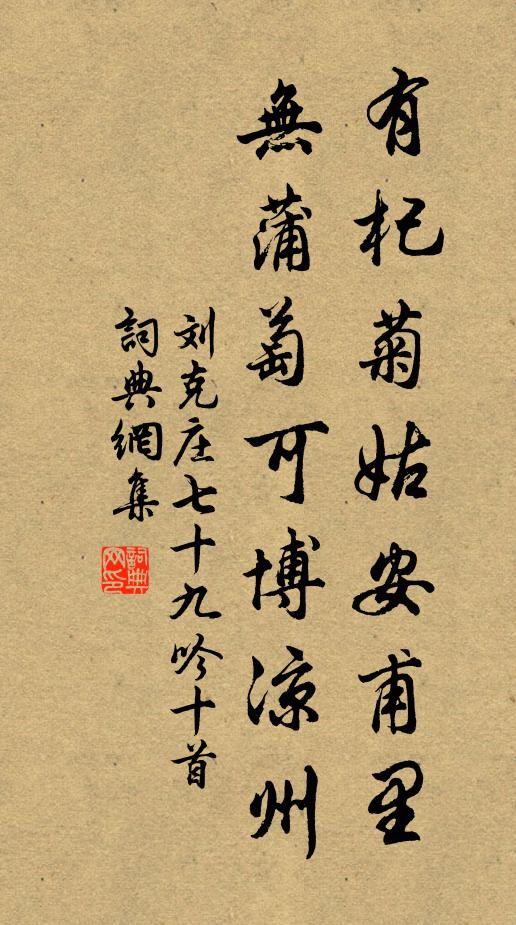 有杞菊姑安甫里
無蒲萄可博涼州
刘克庄七十九吟十首
詞典網集
詞典网印